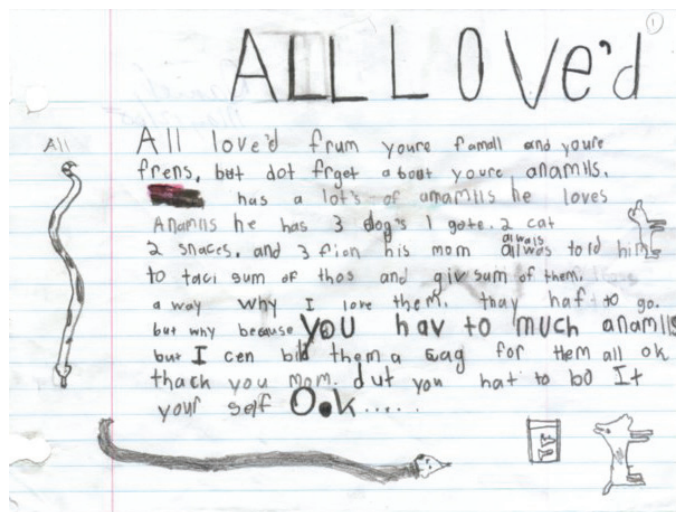 1
ALL LOVe'd
All
All love'd frum youre famall and youre
frens. but dot frget about youre anamlls.
has a lot's of anamlls he loves
Anamlls he has 3 dog's 1 gote. 2 cat
2 snaces. and 3 fion his mom alwas told him
to taci sum of thos and giv sum of them.
a way why I love them. thay haf to go.
but why because you hav to much anamlls
but I cen bild them a gag for them all ok
thack you mom. dut you hat to bo It
your self Ook.....